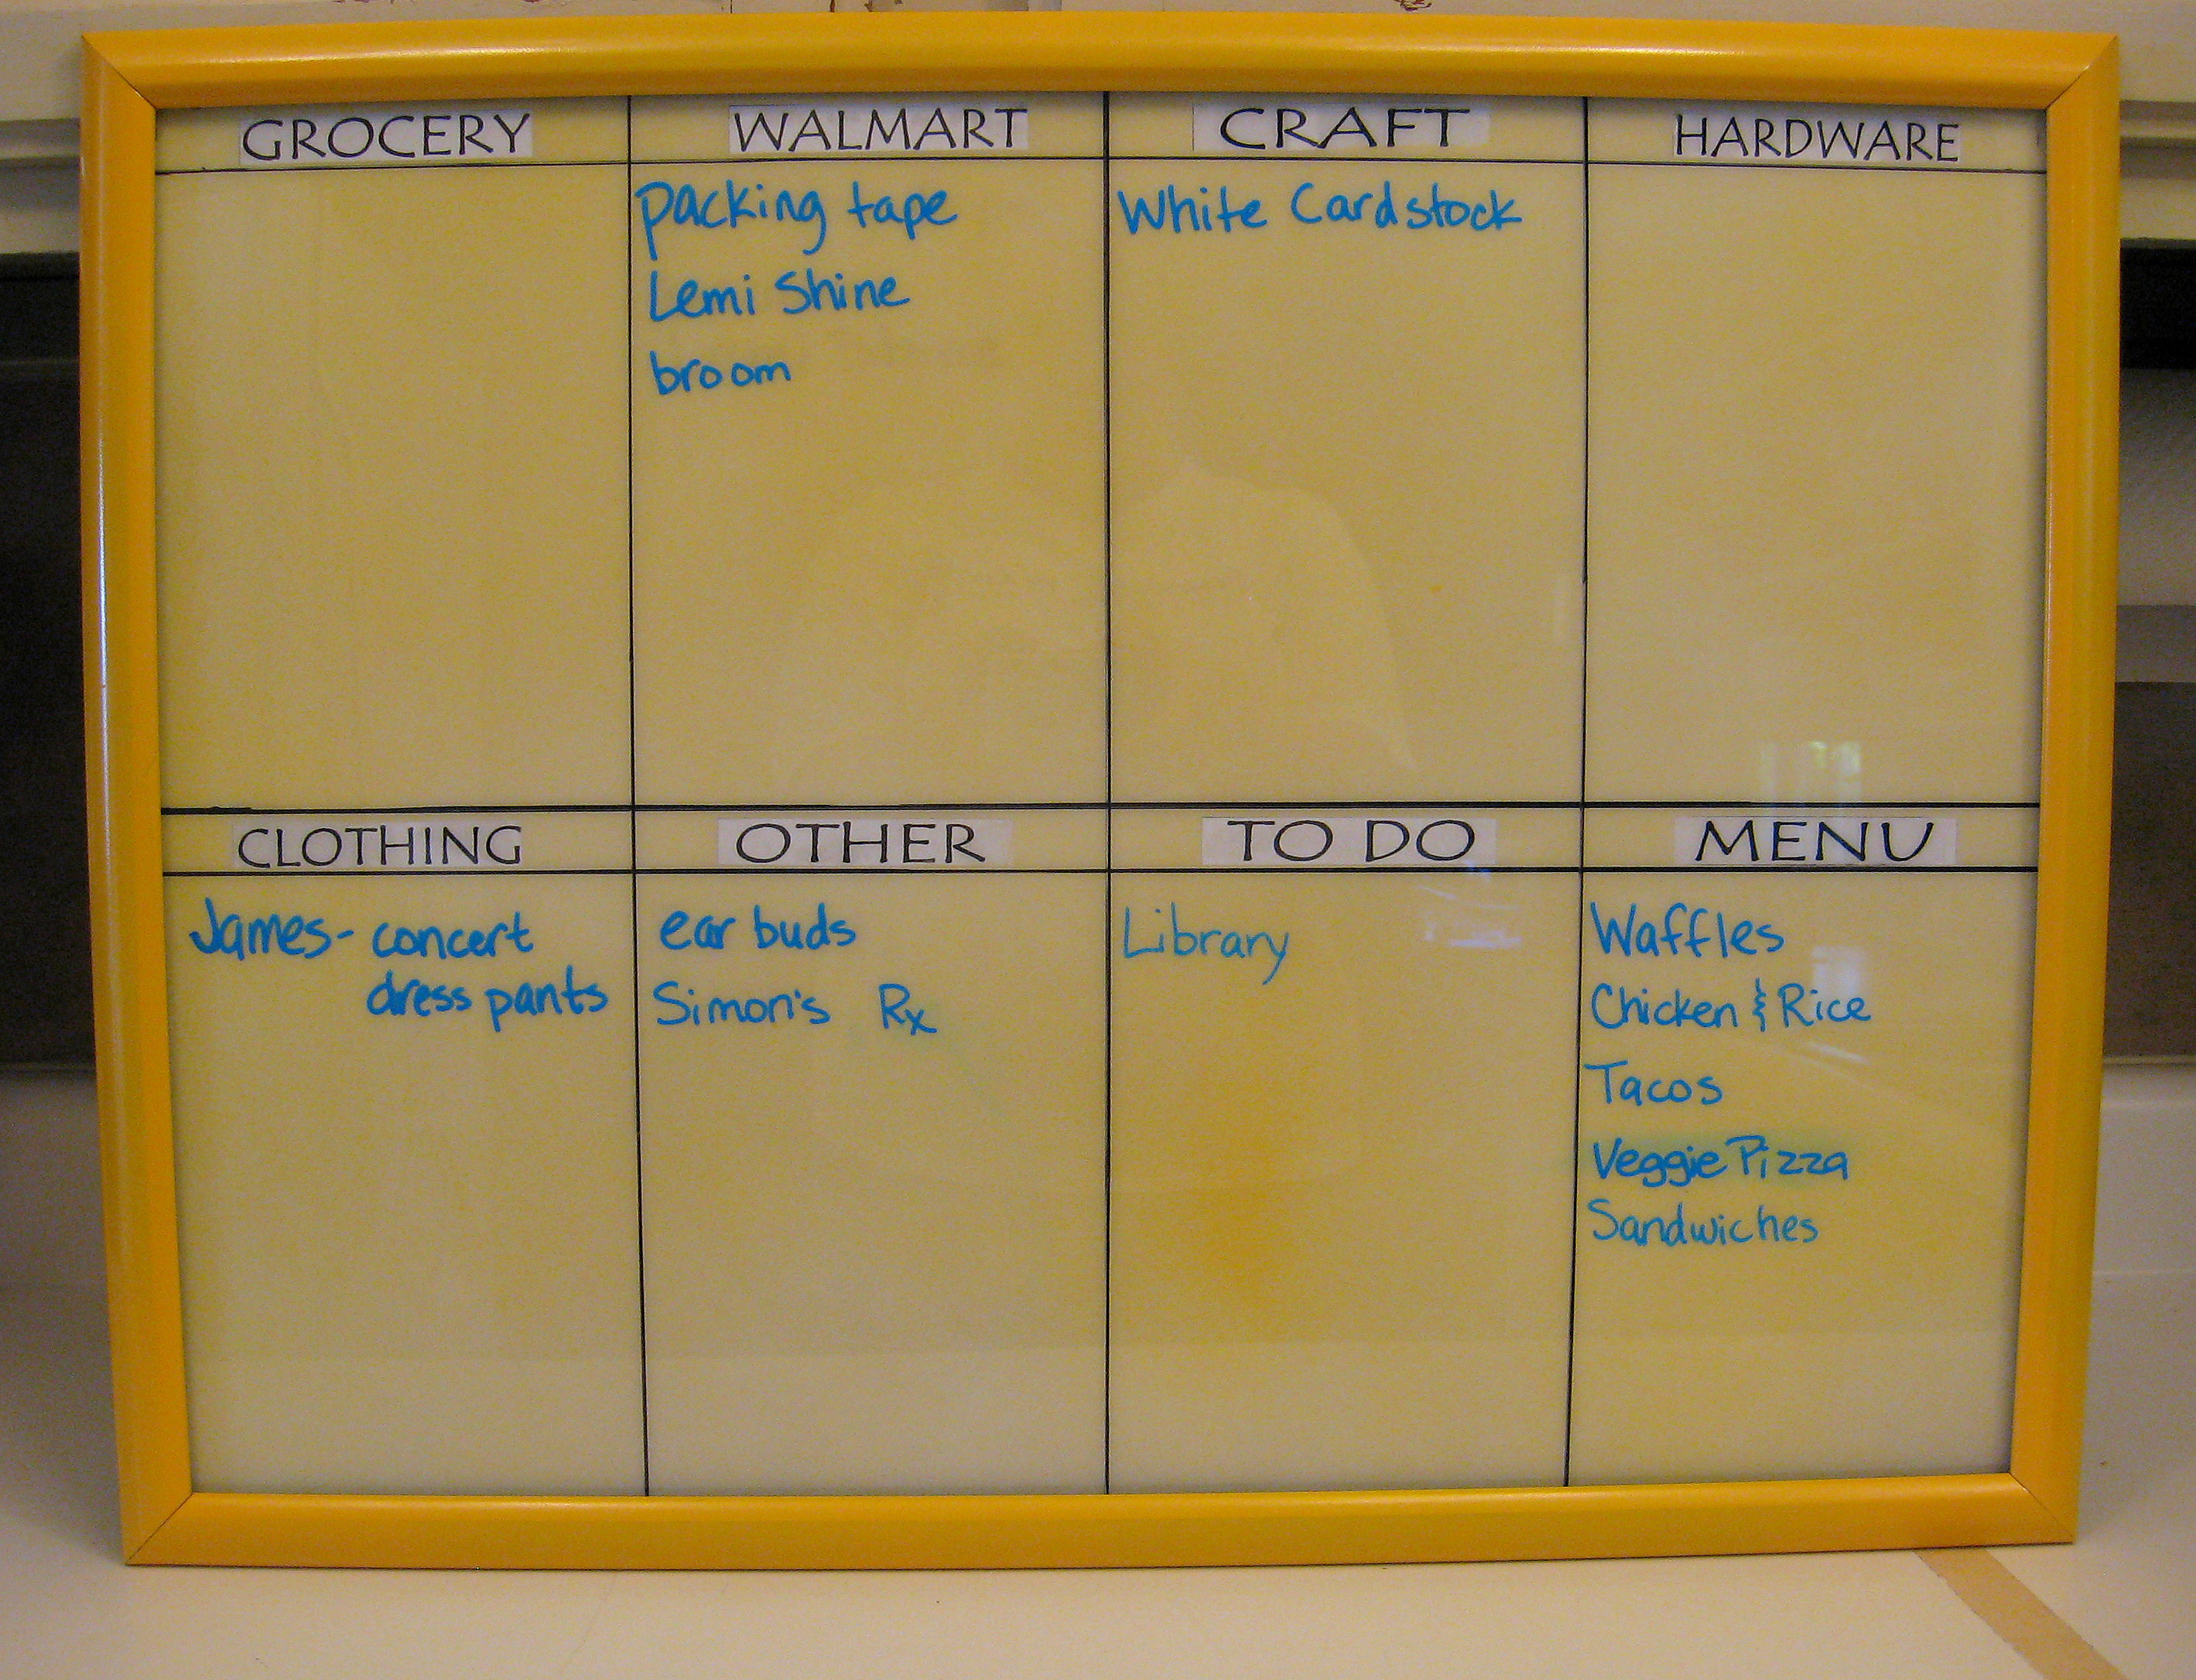 GROCERY
WALMART
packing tape
Lemi Shine
broom
CRAFT
White Cardstock
HARDWARE
CLOTHING
James- concert
dress pants
OTHER
ear buds
Simon's Rx
TO DO
Library
MENU
Waffles
Chicken & Rice
Tacos
Veggie Pizza
Sandwiches